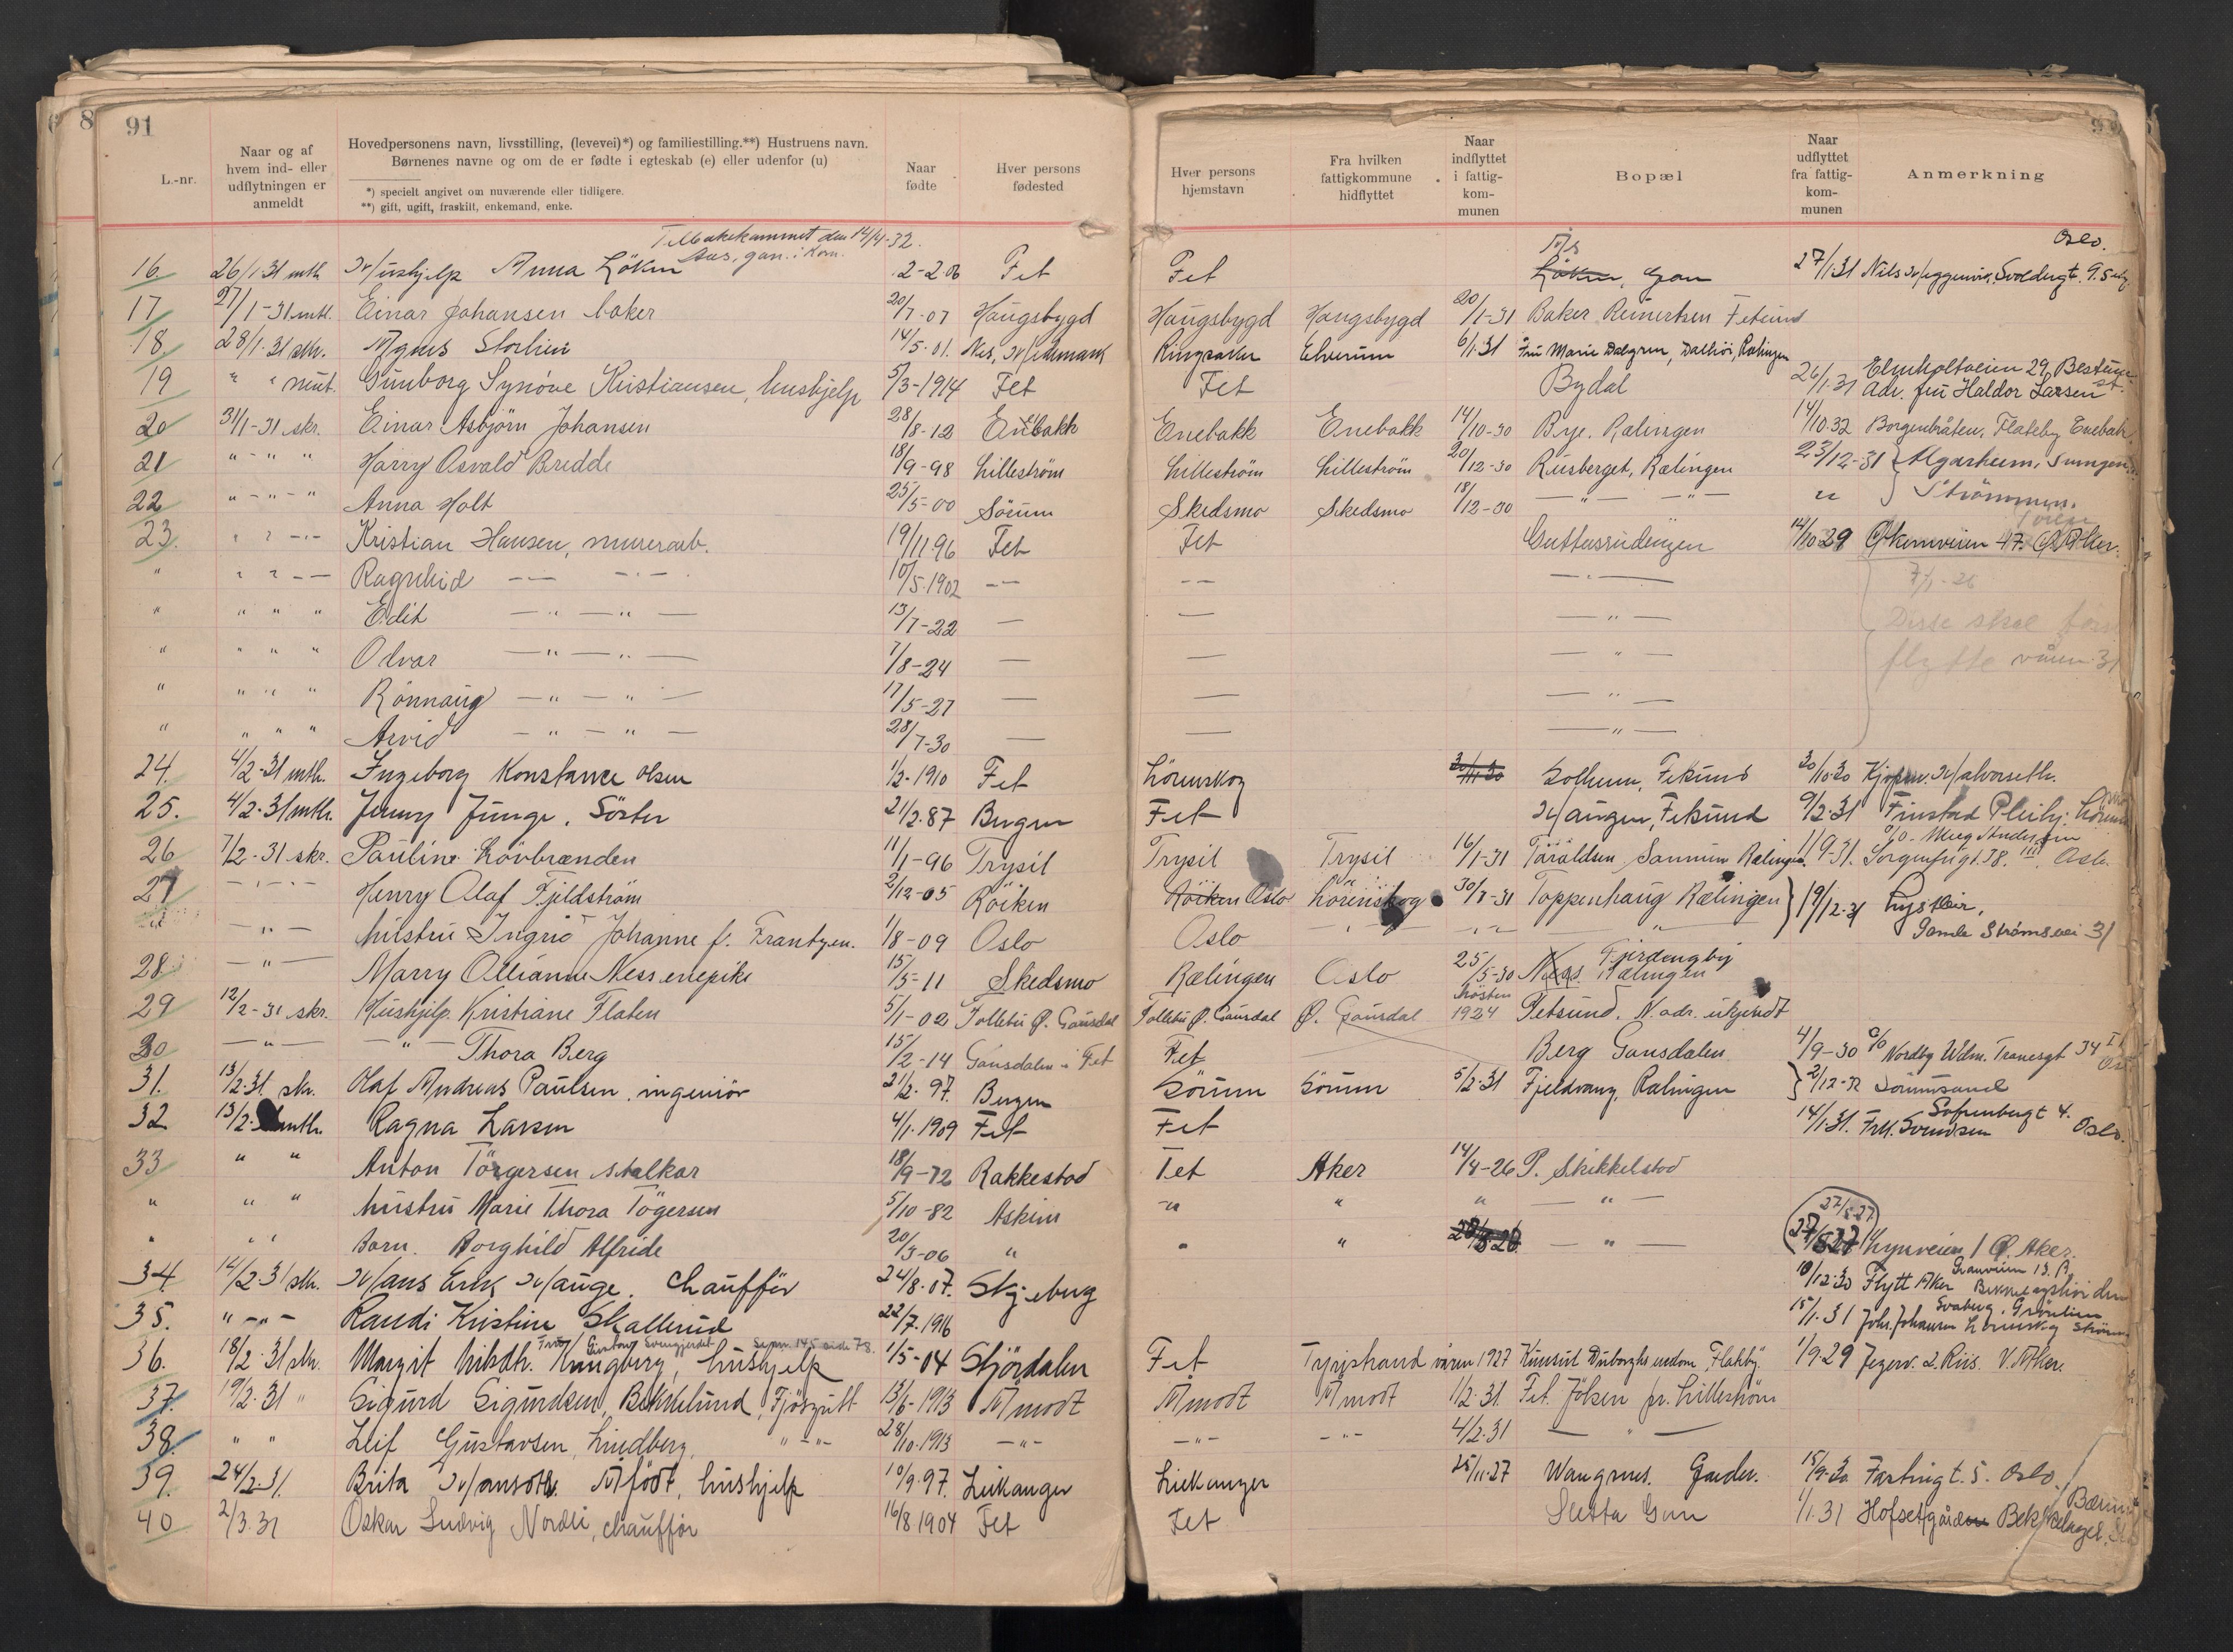 91
L.-nr.
Naar og af hvem ind- eller udflytningen er anmeldt
Hovedpersonens navn, livsstilling, (levevei)*) og familiestilling.**) Hustruens navn.
Børnenes navne og om de er fødte i egteskab (e) eller udenfor (u)
*) specielt angivet om nuværende eller tidligere.
**) gift, ugift, fraskilt, enkemand, enke.
Naar fødte
Hver persons fødested
Hver persons hjemstavn
Fra hvilken fattigkommune hidflyttet
Naar indflyttet i fattigkommunen
Bopæl
Naar udflyttet fra fattigkommunen
Anmerkning
Tilbakekommet den 14/4-32.
16 26/1.31 mth Hushjelp Anna Löken 2-2.06 Fet Fet Löken, Gan 27/1.31 Nils Oslo.
17 27/1-31 mtl. Einar Johansen baker 20/7-07 Haugsbygd Haugsbygd Haugsbygd 20/1-31 Baker Reinertsen Fetsund
18. 28/1.31 skr. Agnes Storlien 14/5.01. Nes, Hedmark Ringsaker Elverum 6/1.31 Fru Marie Dalgren, Dalheim, Rælingen
19 " " munt. Gunborg Synöve Kristiansen, hushjelp 5/3-1914 Fet Fet Bydal 26/1.31 Elmholtveien 29, Bestum st. Adr. fru Haldor Larsen
20 31/1-31 skr. Einar Asbjörn Johansen 28/8-12 Enebakk Enebakk Enebakk 14/10-30 Bye. Rælingen 14/10.32 Borgenbråten, Flateby Enebakk.
21 " - " " Harry Osvald Bredde 18/9-98 Lilleström Lilleström Lilleström 20/12-30 Riisberget, Rælingen 23/12-31 Algarheim,
22 " - " - " Anna Holt 25/5-00 Sörum Skedsmo Skedsmo 18/12-30 — " — — " — " Strömmen.
23. " " - " - Kristian Hansen, murerarb. 19/11 96 Fet Fet Guttersrudengen 14/10 29 Økernveien 47. Ø. Aker.
" " " - - Ragnhild — — — " — 10/5.1902 — — — — — " — 7/1-26
" " " " Edit — " — " — 13/7-22 — — — " — Disse skal først
" " " " Odvar — " — " — 7/8-24 — — — " — flytte våren 31
" " " " Rönnaug — " — " — 17/5-27 — — — " —
" " " " Arvid — " — " — 28/7-30 — — — " —
24. 4/2-31 mth. Ingeborg Konstance Olsen 1/2-1910 Fet Lörenskog 30/11 30 Solheim, Fetsund 30/10.30 Kjøpm. Halvorseth.
25. 4/2-31 mth. Jenny Junge, Söster 21/2.87 Bergen Fet Haugen, Fetsund 9/2.31 Finstad Pleihj.
26 7/2-31 skr. Pauline Lövbrænden 11/1-96 Trysil Trysil Trysil 16/1-31 Taraldsen Sannum Rælingen. 1/9.31. c/o. Sorgenfrigt. 38. III Oslo.
27 — " — " — Henry Olaf Fjeldström 2/12-05 Röiken Röiken Oslo Lörenskog 30/1-31 Toppenhaug Rælingen 19/12.31
— " — hustru Ingrid Johanne f. Frantzen. 1/8-09 Oslo Oslo — " — — " — " Gamle Strömsvei 31
28 — " — Marry Ness enepike 15/5-11 Skedsmo Rælingen Oslo 25/5-30 Ness Rælingen
29 12/2-31 skr. Hushjelp Kristiane Flaten 5/1-02 Follebu Ø. Gausdal Follebu Ø. Gausdal Ø. Gausdal hösten 1924 Fetsund. N. adr. ukjendt
30 — " — — " — Thora Berg 15/2-14 Gansdalen i Fet Fet Berg Gansdalen 4/9-30 c/o Nordby Wdm. Tranesgt 34 II Oslo
31. 13/2.31. skr. Olaf Andreas Paulsen, ingeniör 21/2.97. Bergen Sörum Sörum 5/2.31 Fjeldvang, Rælingen 2/12-32 Sörumsand
32 13/2.31 mth. Ragna Larsen 4/1.1909 Fet Fet 14/1.31. Frk. Svendsen Sofienbergt 4. Oslo.
33 " " Anton Törgersen stalkar 18/9-72 Rakkestad Fet Aker 14/4-26 P. Skikkelstad
" " " hustru Marie Thora Tögersen 5/10-82 Askim — " " " — " — 27/5-27
" " " Barn. Borghild Alfride 20/3-06 " " " 28/8 26 — " — 27/5 27 Lynveien 1 Ø. Aker.
34. 14/2.31 skr. Hans Erik Hauge. Chauffør 24/8.07. Skjeberg 10/12.30 Flytt Aker Granveien 13. B.
35. " - " - Randi Kristine Skallerud 22/7.1916 15/1.31 Johs. Johansen Lörenskog
36. 18/2.31 skr. Margit Nilsdtr. Kringberg, hushjelp 1/5-04 Stjördalen Fet Tyristrand våren 1927 Flatby. 1/9.29 Jegerv. 2. Riis. V. Aker.
37. 19/2.31 " Sigurd Sigurdsen, Bekkelund, Fjösgutt 13/6-1913 Åmodt Åmodt Åmodt 1/2.31. Fet. Jölsen pr. Lilleström
38. " " Leif Gustavsen, Lindberg, " - " - 28/10.1913 — " — — " — — " — 4/2.31 — " —
39. 24/2-31. Brita Hansdtr. Aafödt, hushjelp 10/9.97. Leikanger Leikanger 25/11.27 Wangsnes. Garder. 15/9.30. Fastingt. 5. Oslo.
40 2/3.31 Oskar Ludvig Nordli, chauffør 16/8 1904 Fet Fet Sletta Gan 1/1.31 Hofsetgården Bekkelaget, Bærum